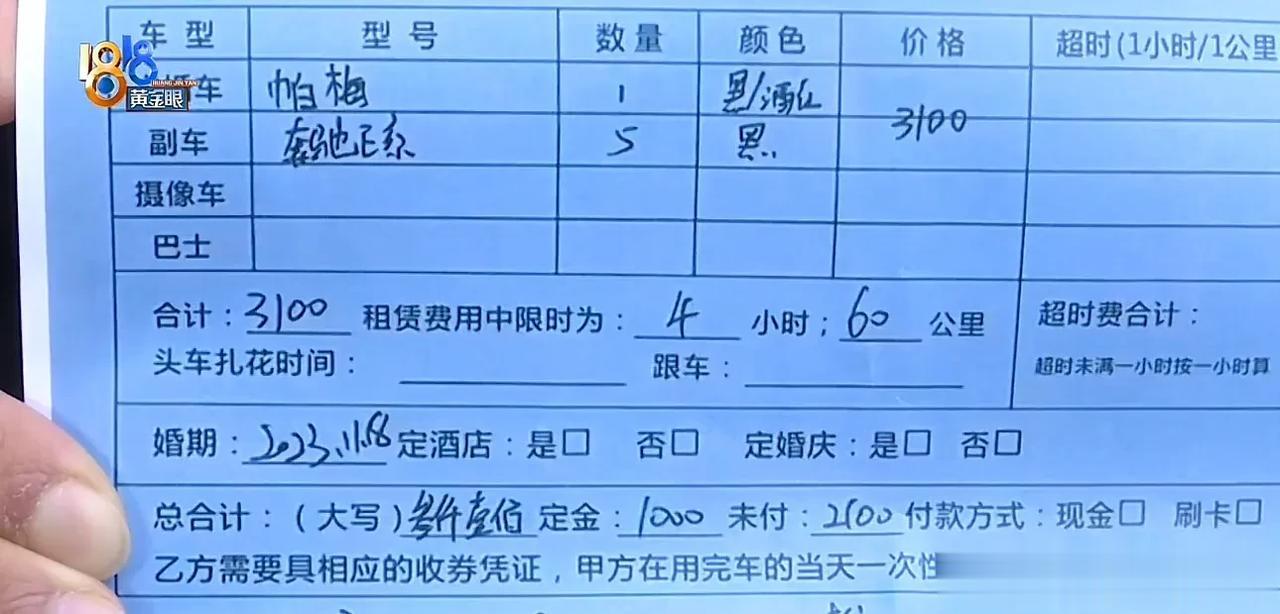 1818
HUANG JIN YAN
黄金眼
车型 型号 数量 颜色 价格 超时(1小时/1公里
婚车 帕梅 1 黑/酒红 3100
副车 奔驰E系 5 黑
摄像车
巴士
合计：3100 租赁费用中限时为：4 小时；60 公里 超时费合计：
头车扎花时间： 跟车： 超时未满一小时按一小时算
婚期：2023.11.18 定酒店：是□ 否□ 定婚庆：是□ 否□
总合计：（大写）叁仟壹佰 定金：1000 未付：2100 付款方式：现金□ 刷卡□
乙方需要具相应的收券凭证，甲方在用完车的当天一次性